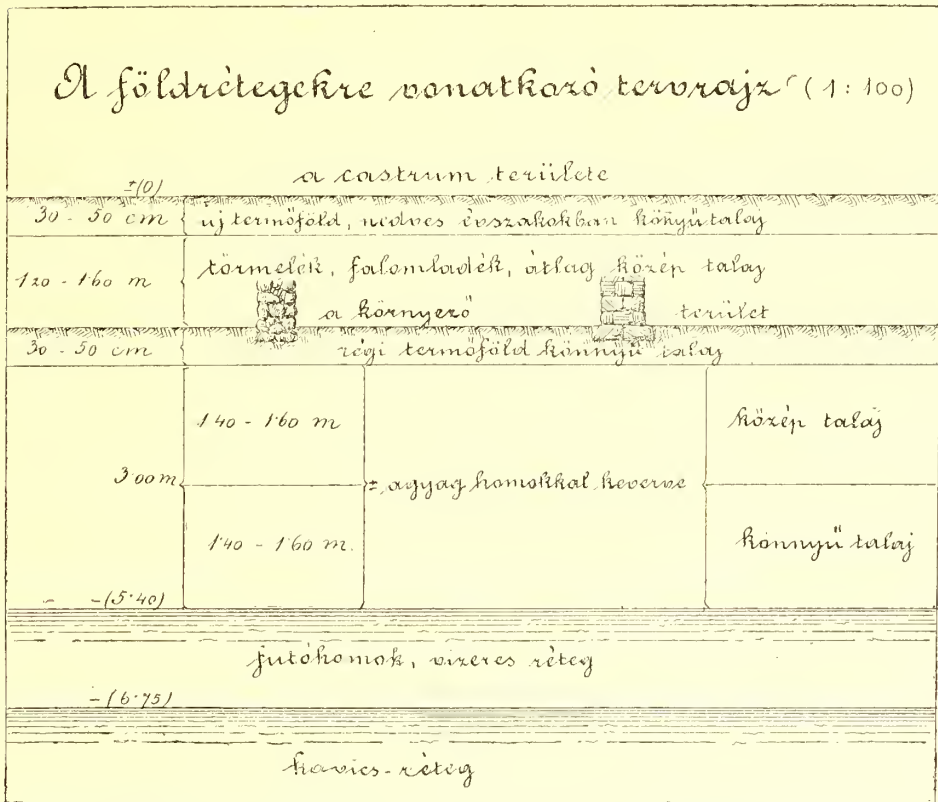 A földrétegekre vonatkozó tervrajz (1:100)
a castrum területe
±(0)
30 - 50 cm { új termőföld, nedves évszakokban könyű talaj
1·20 - 1·60 m { törmelék, falomladék, átlag közép talaj
a környező terület
30 - 50 cm { régi termőföld könnyű talaj
1·40 - 1·60 m közép talaj
3·00 m ± agyag homokkal keverve
1·40 - 1·60 m. könnyű talaj
- -(5·40)
futóhomok, vizeres réteg
-(6·75)
kavics-réteg